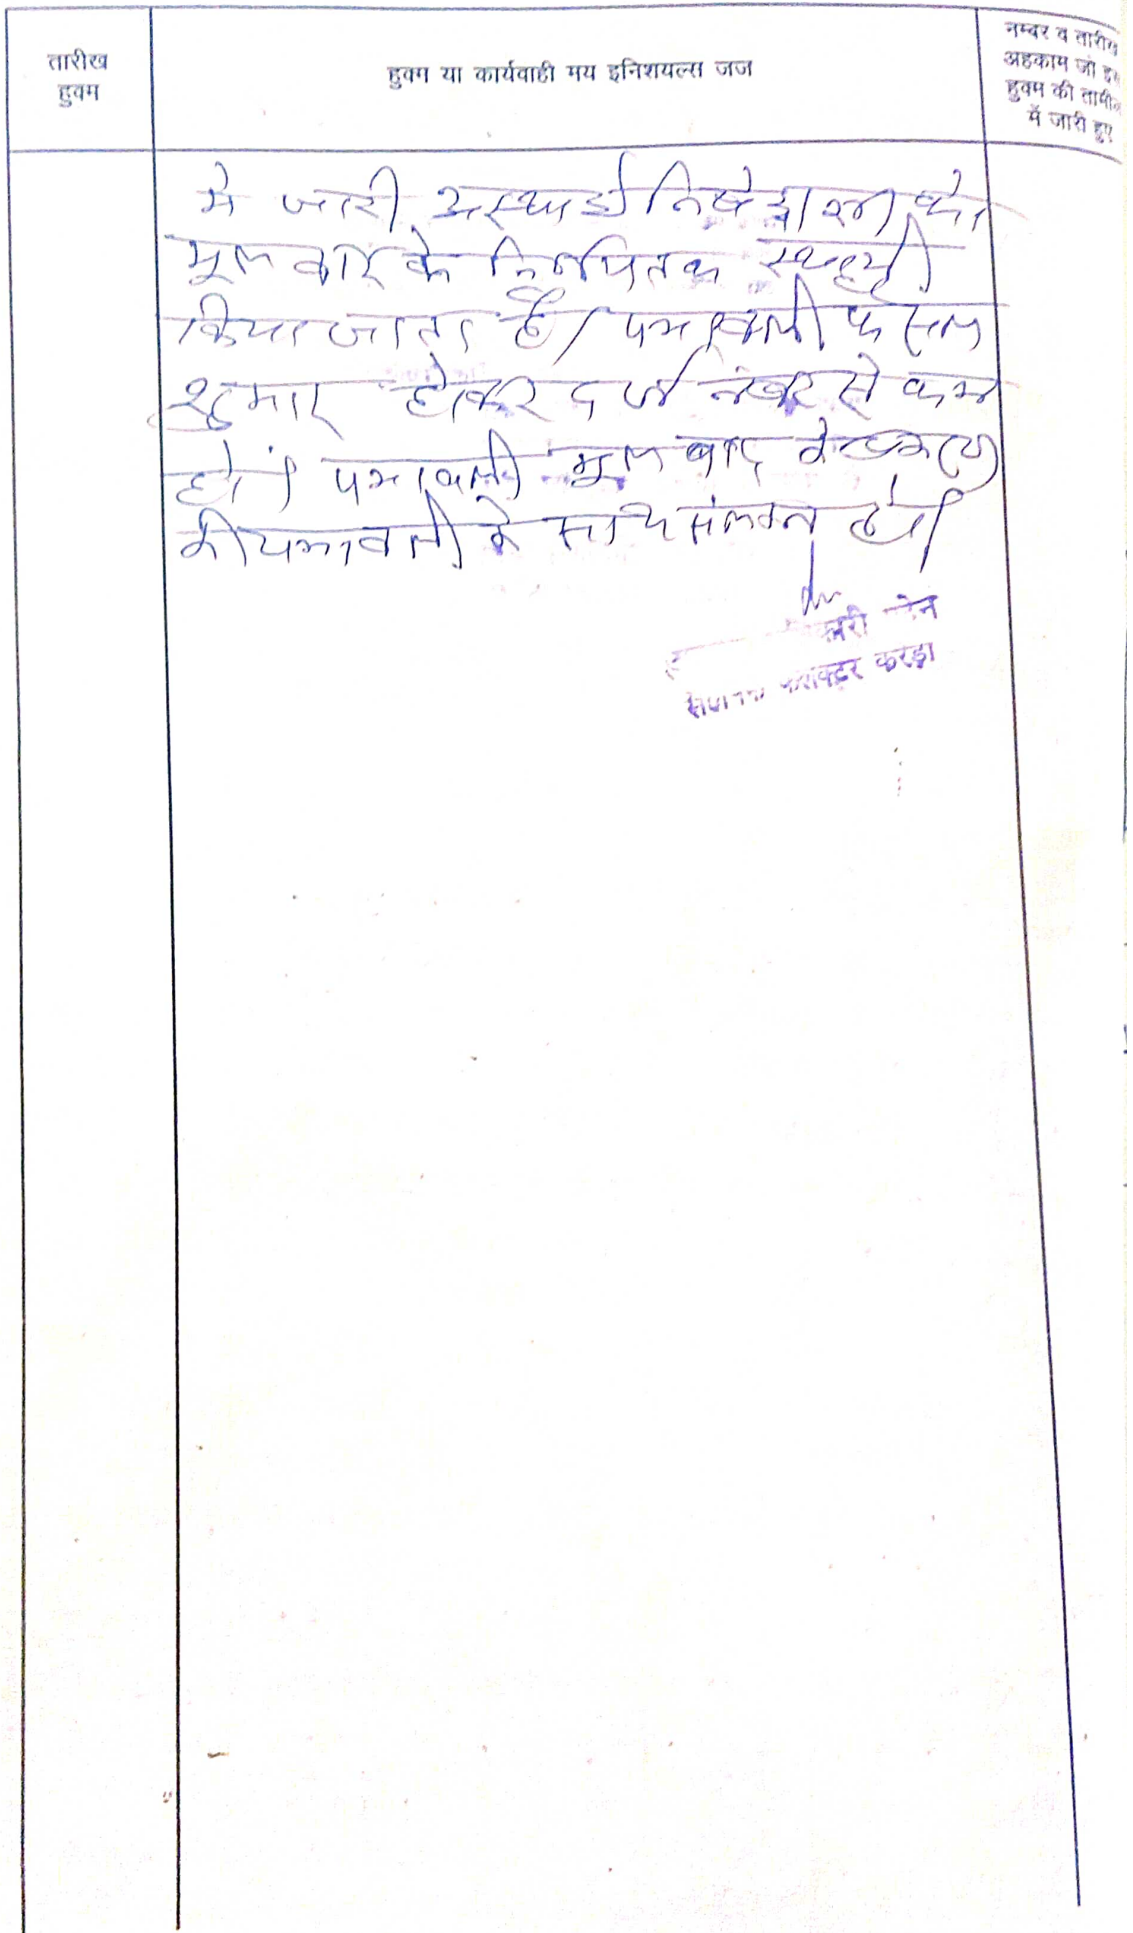 तारीख
हुक्म
हुक्म या कार्यवाही मय इनिशयल्स जज
नम्बर व तारीख
अहकाम जो इस
हुक्म की तामील
में जारी हुए
मे जारी अस्थाई निषेधाज्ञा को
मूल वाद के निर्णय तक स्थाई
किया जाता है। पत्रावली फैसल
शुमार होकर दर्ज नंबर से कम
हो। पत्रावली मूल वाद के
की पत्रावली के साथ संलग्न हो।
कलक्टर करेड़ा